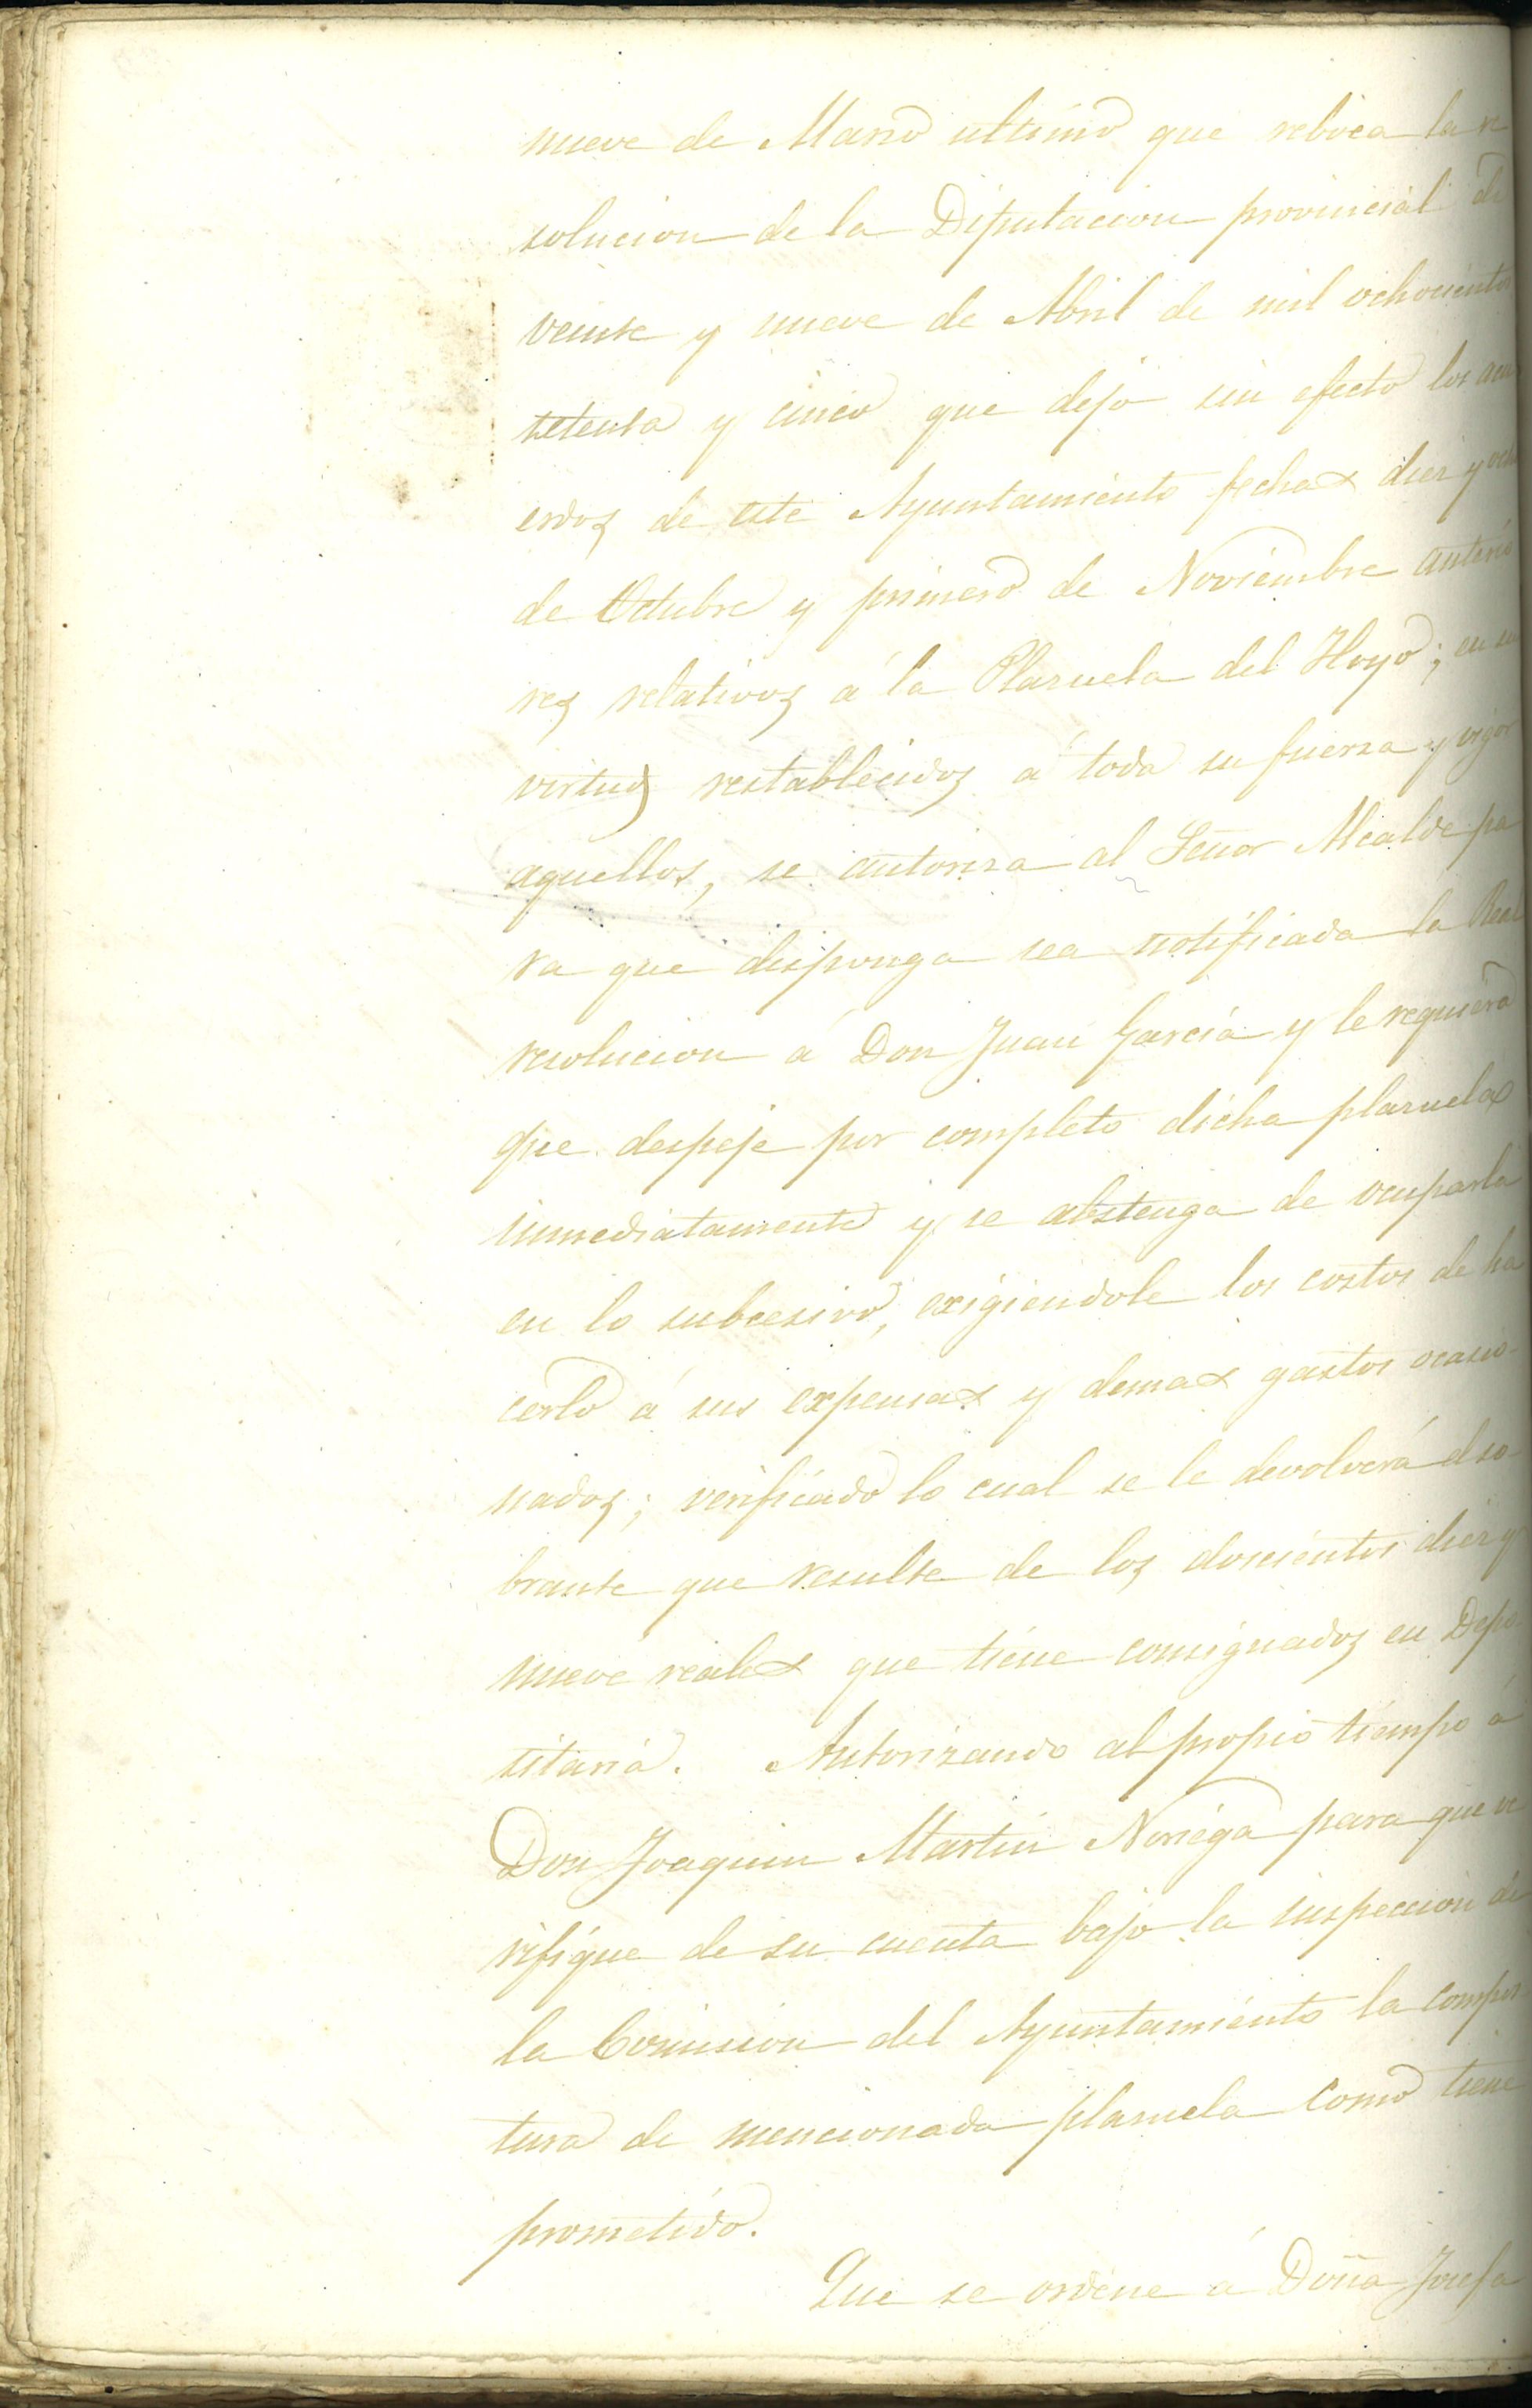 nueve de Marzo ultimo que reboca la re
solucion de la Diputacion provincial de
veinte y nueve de Abril de mil ochocientos
setenta y cinco que dejó sin efecto los acu
erdos de este Ayuntamiento fechas diez y ocho
de Octubre y primero de Noviembre anterio
res relativos á la Plazuela del Hoyo; en su
virtud restablecidos á toda su fuerza y vigor
aquellos, se autoriza al Señor Alcalde pa
ra que disponga sea notificada la Real
resolucion á Don Juan Garcia y le requiera
que despeje por completo dicha plazuela
inmediatamente y se abstenga de ocuparla
en lo subcesivo, exigiendole los costos de ha
cerlo á sus expensas y demas gastos ocasio-
nados; verificado lo cual se le devolverá el so-
brante que resulte de los doscientos diez y
nueve reales que tiene consignados en Depo
sitaria. Autorizando al propio tiempo á
Don Joaquin Martin Noriega para que ve
rifique de su cuenta bajo la inspeccion de
la Comision del Ayuntamiento la compos
tura de mencionada plazuela como tiene
prometido.
Que se ordene á Doña Josefa